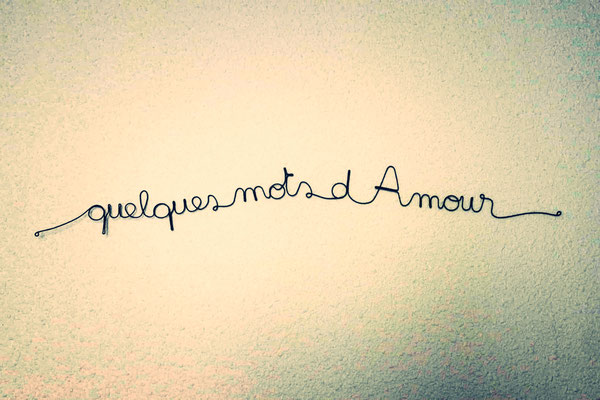 quelques mots d Amour